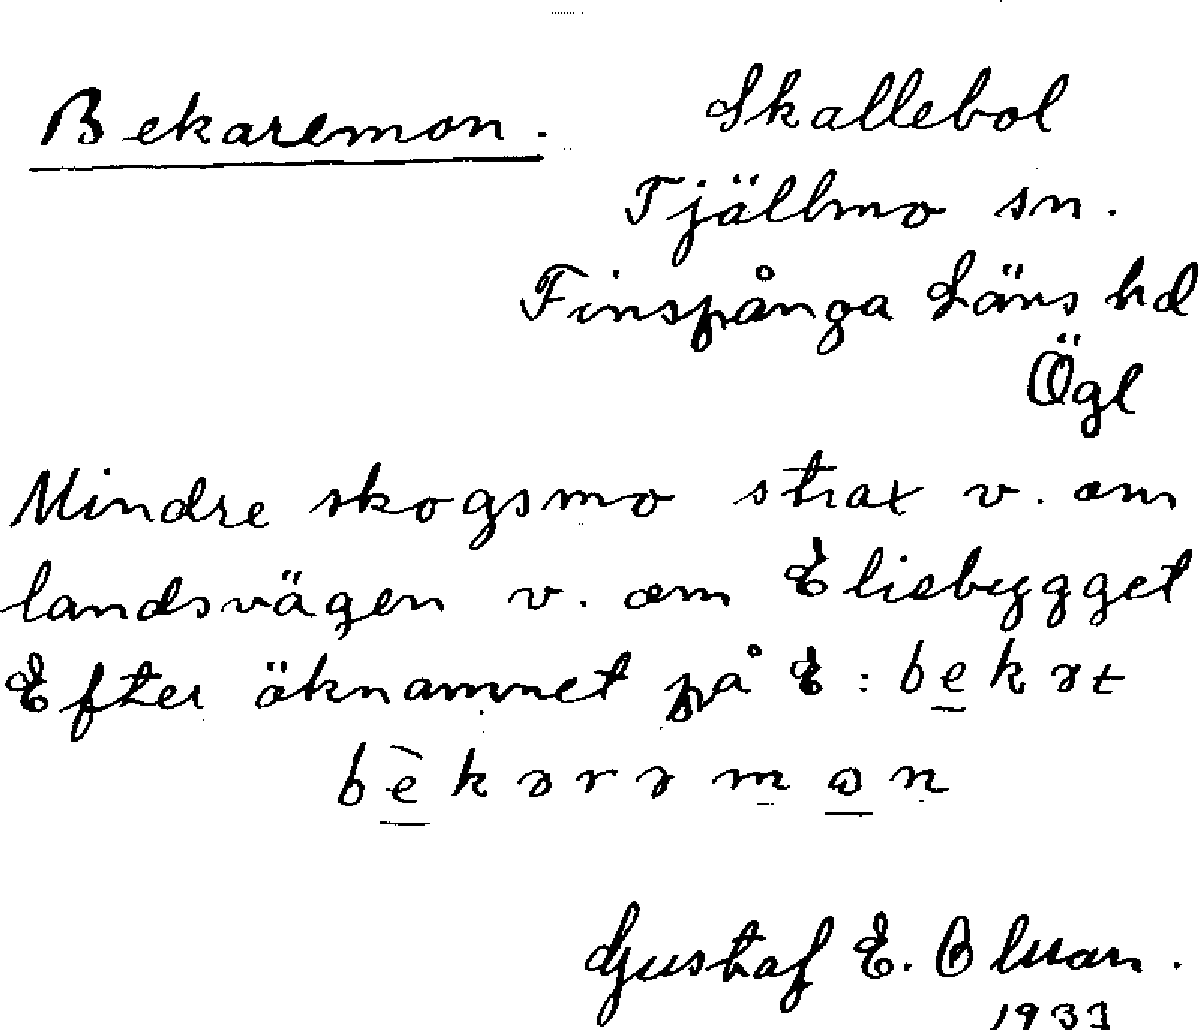 Bekaremon.
Skallebol
Tjällmo sn.
Finspånga Läns hd
Ögl
Mindre skogsmo strax v. om
landsvägen v. om Eliebygget
Efter öknamnet på E:
Gustaf E.
1933